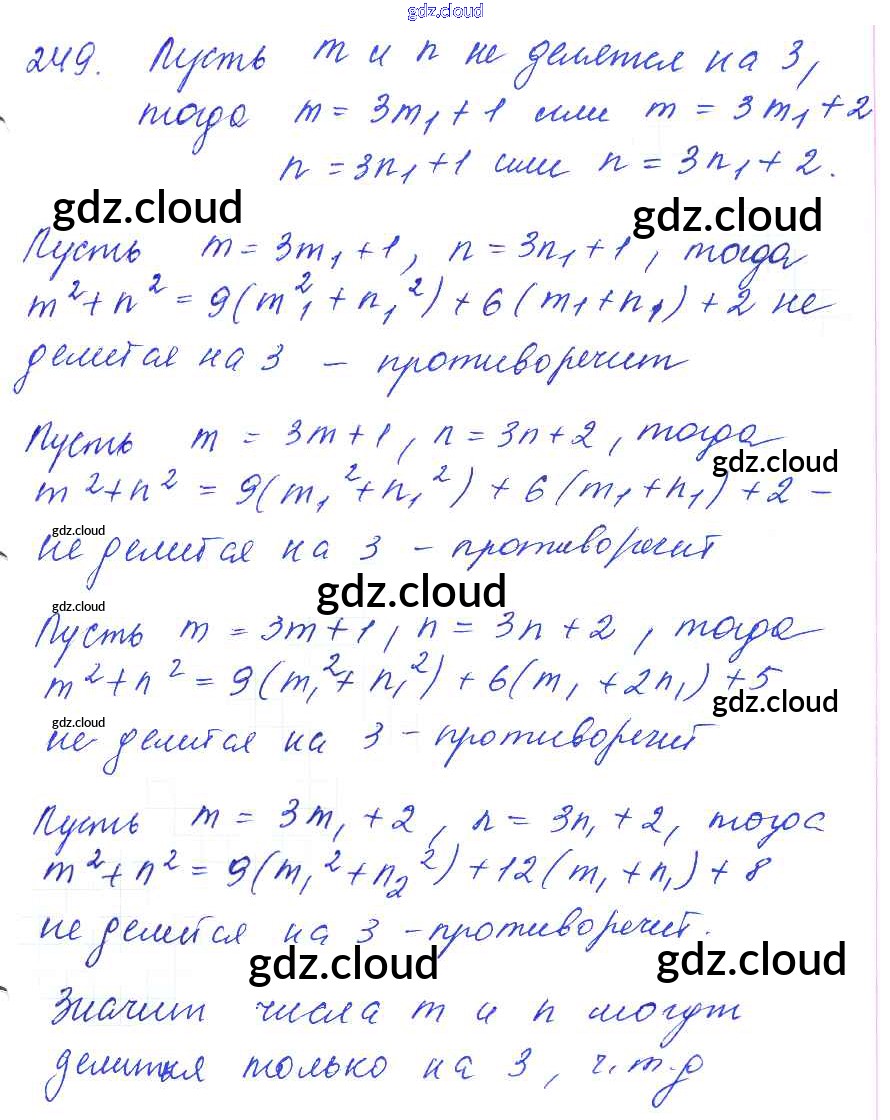 gdz.cloud
249. Пусть m и n не делятся на 3,
тогда m = 3m₁ + 1 или m = 3m₁ + 2
n = 3n₁ + 1 или n = 3n₁ + 2.
gdz.cloud gdz.cloud
Пусть m = 3m₁ + 1, n = 3n₁ + 1, тогда
m² + n² = 9(m₁² + n₁²) + 6(m₁ + n₁) + 2 не
делится на 3 – противоречит
Пусть m = 3m + 1, n = 3n + 2, тогда
gdz.cloud
m² + n² = 9(m₁² + n₁²) + 6(m₁ + n₁) + 2 –
gdz.cloud
не делится на 3 – противоречит
gdz.cloud
gdz.cloud
Пусть m = 3m + 1, n = 3n + 2, тогда
m² + n² = 9(m₁² + n₁²) + 6(m₁ + 2n₁) + 5
gdz.cloud
gdz.cloud
не делится на 3 – противоречит
Пусть m = 3m₁ + 2, n = 3n₁ + 2, тогда
m² + n² = 9(m₁² + n₂²) + 12(m₁ + n₁) + 8
не делится на 3 – противоречит.
gdz.cloud gdz.cloud
Значит числа m и n могут
делиться только на 3, ч.т.д